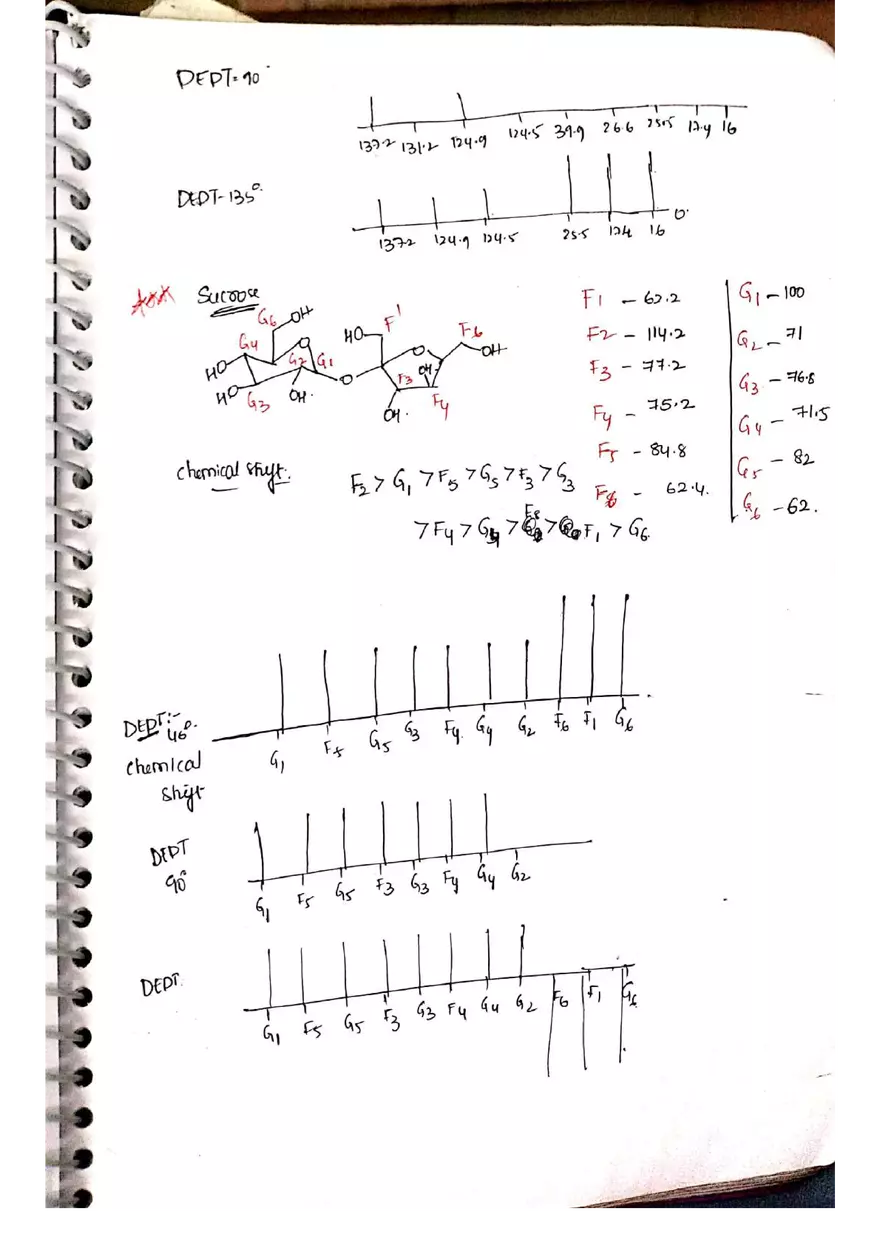 DEPT-90°
137.2 131.2 124.9 124.5 39.9 26.6 25.5 17.4 16
DEPT-135°
137.2 124.9 124.5 25.5 16 0.
Sucrose
G6 OH HO F' F6
G4 O O OH
HO G2 G1 F3 OH
HO G3 OH O OH F4
F1 - 62.2
F2 - 114.2
F3 - 77.2
F4 - 75.2
F5 - 84.8
F6 - 62.4.
G1 - 100
G2 - 71
G3 - 76.8
G4 - 71.5
G5 - 82
G6 - 62.
chemical shift:
F2 > G1 > F5 > G5 > F3 > G3
> F4 > G4 > > F1 > G6
DEPT:-
45°.
chemical
shift
G1 F5 G5 G3 F4 G4 G2 F6 F1 G6
DEPT
90°
G1 F5 G5 F3 G3 F4 G4 G2
DEPT
G1 F5 G5 F3 G3 F4 G4 G2 F6 F1 G6